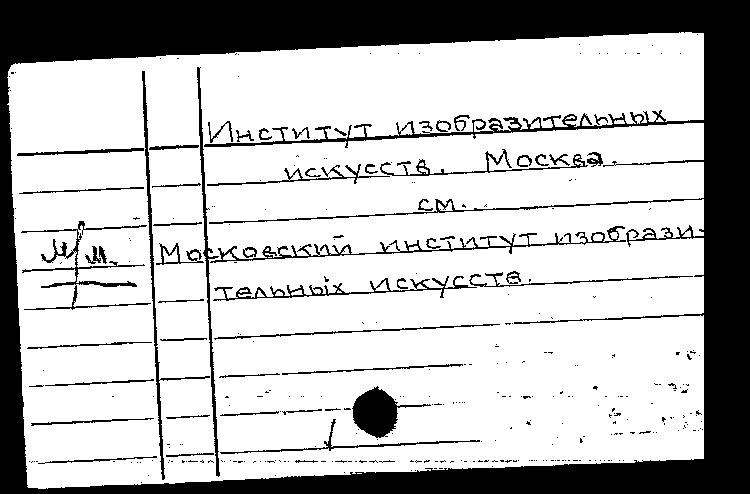 Институт изобразительных
искусств. Москва.
см.
Московский институт изобрази-
тельных искусств.